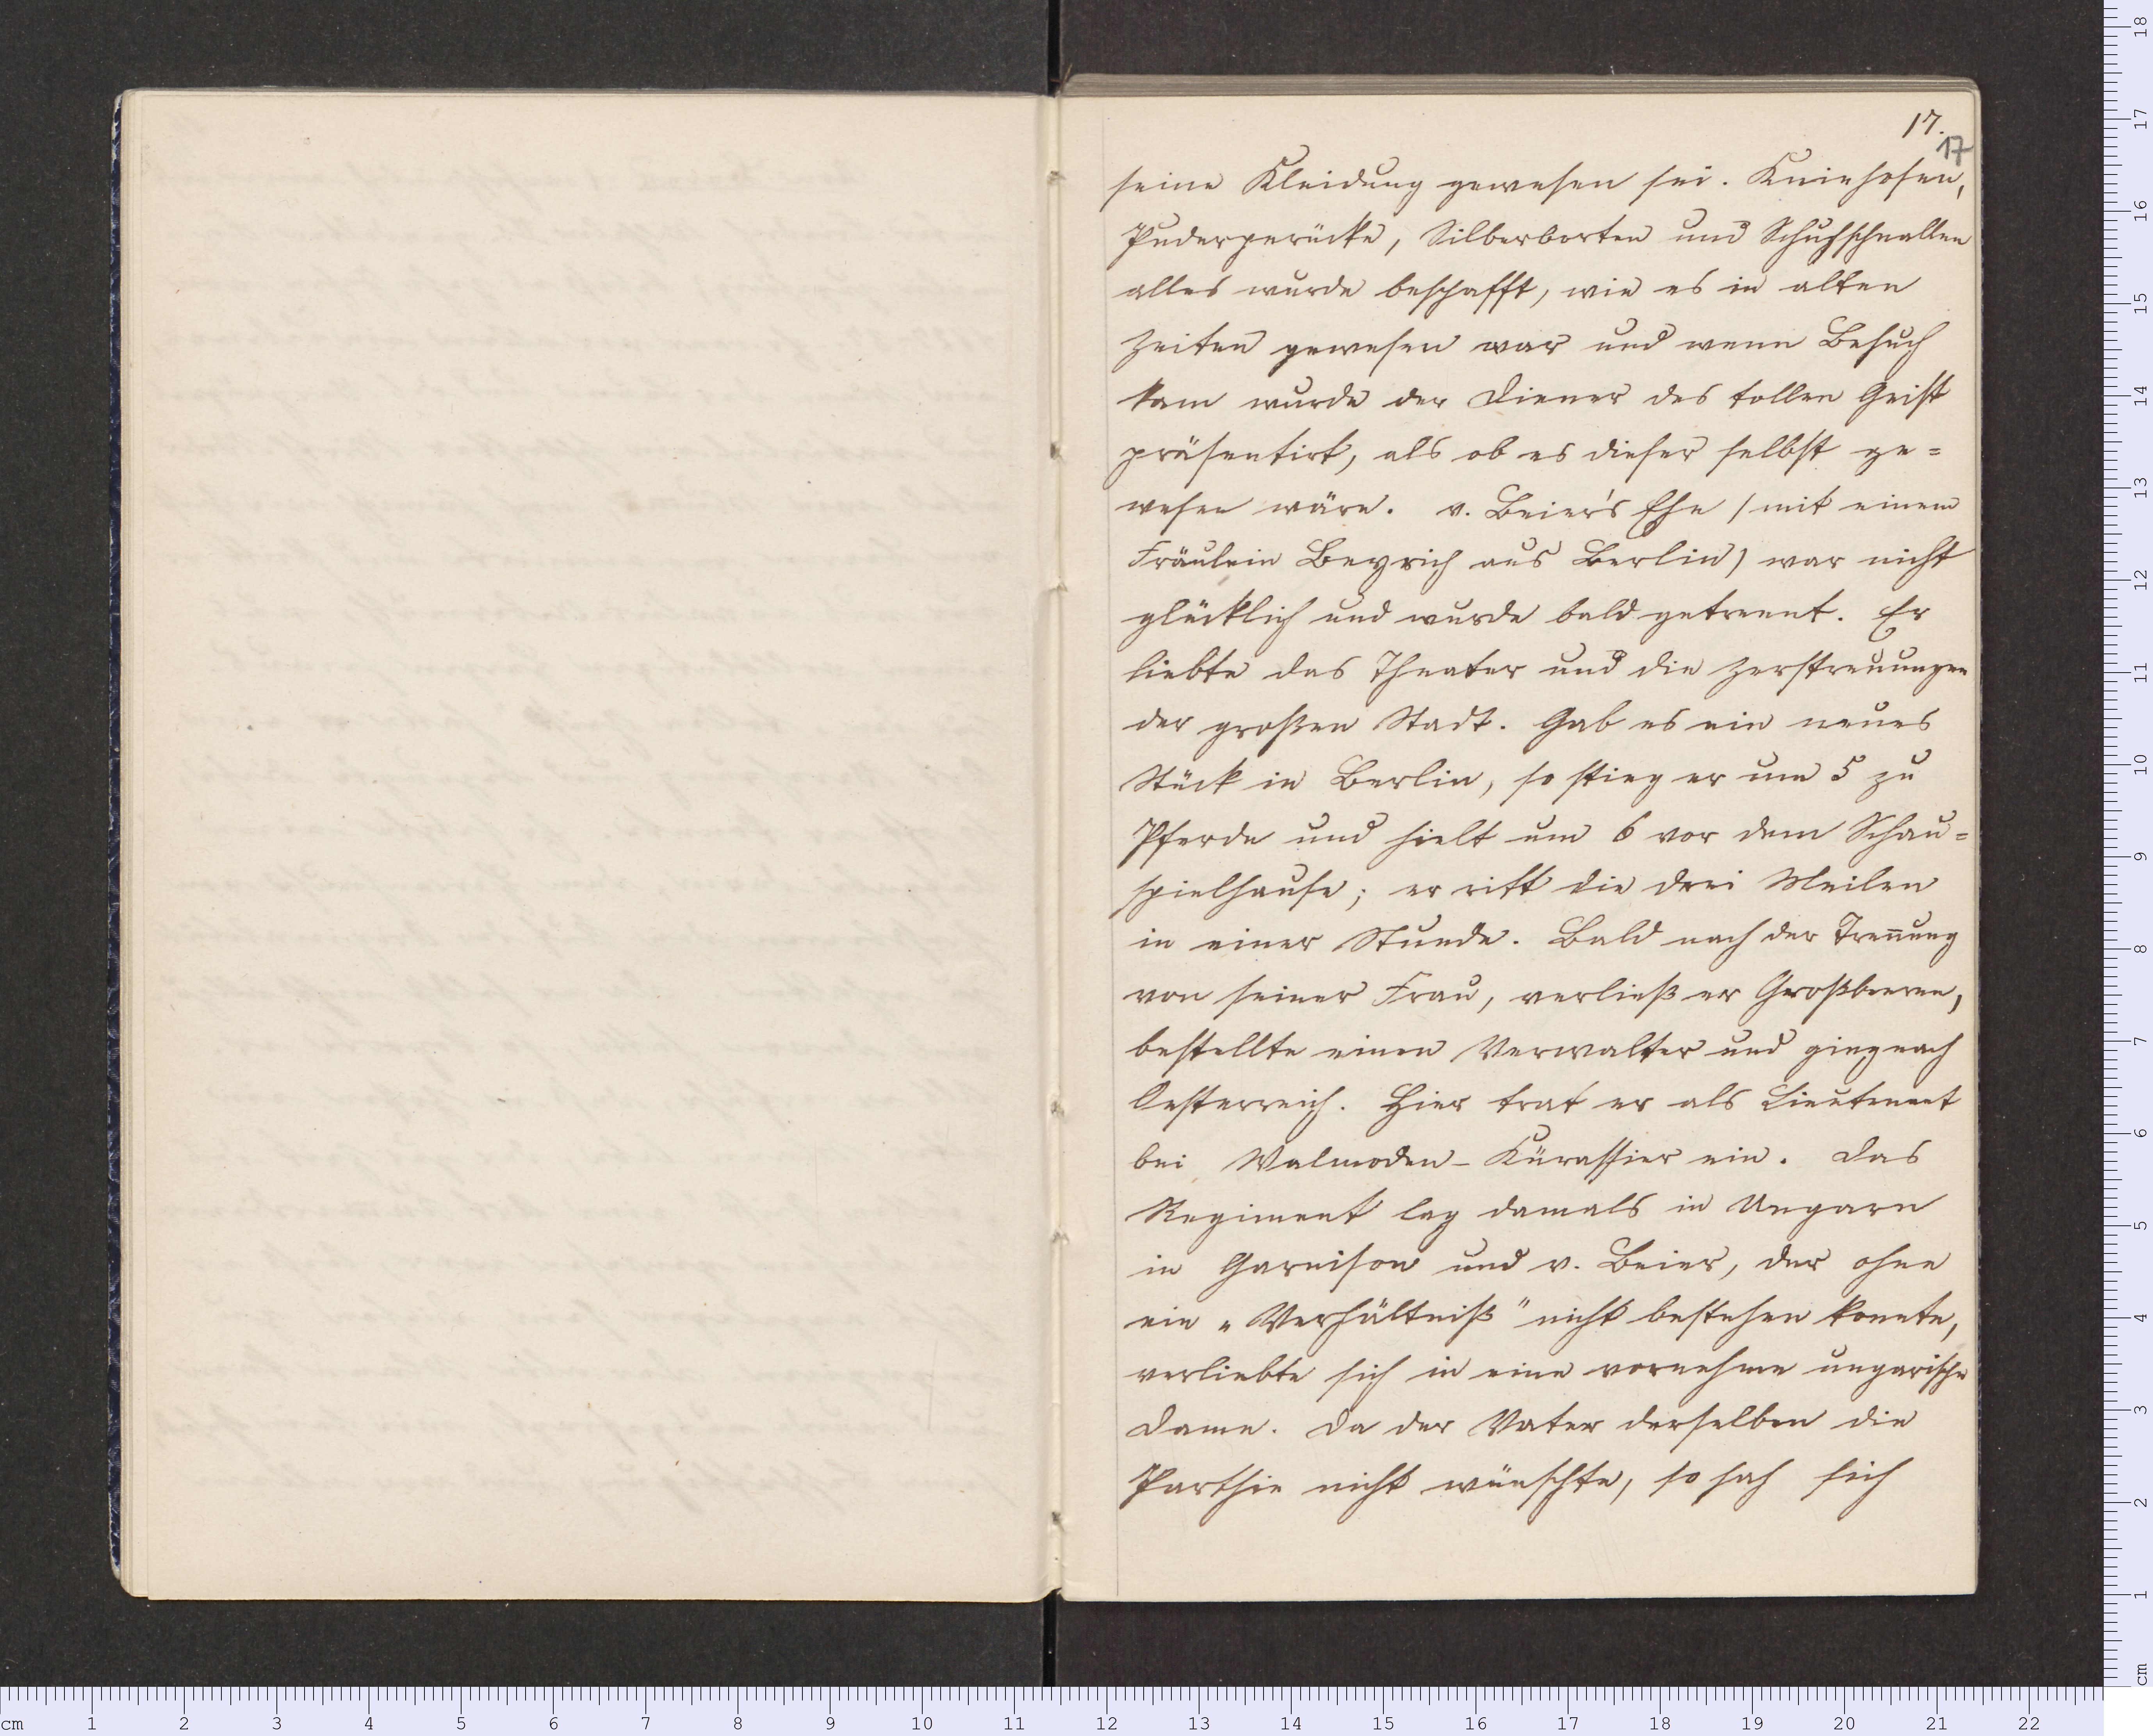 17.
17
seine Kleidung gewesen sei. Kniehosen,
Puderperücke, Silberborten und Schuhschnallen
alles wurde beschafft, wie es in alten
Zeiten gewesen war und wenn Besuch
kam wurde der Diener des tollen Geist
präsentirt, als ob es dieser selbst ge=
wesen wäre. v. Beier's Ehe (mit einem
Fräulein Beyrich aus Berlin) war nicht
glücklich und wurde bald getrennt. Er
liebte das Theater und die Zerstreuungen
der großen Stadt. Gab es ein neues
Stück in Berlin, so stieg er um 5 zu
Pferde und hielt um 6 vor dem Schau=
spielhause; er ritt die drei Meilen
in einer Stunde. Bald nach der Treñung
von seiner Frau, verließ er Großbeeren,
bestellte einen Verwalter und ging nach
Oesterreich. Hier trat er als Lieutenant
bei Walmoden-Kürassier ein. Das
Regiment lag damals in Ungarn
in Garnison und v. Beier, der ohne
ein „Verhältniß" nicht bestehen konnte,
verliebte sich in eine vornehme ungarische
Dame. Da der Vater derselben die
Parthie nicht wünschte, so sah sich